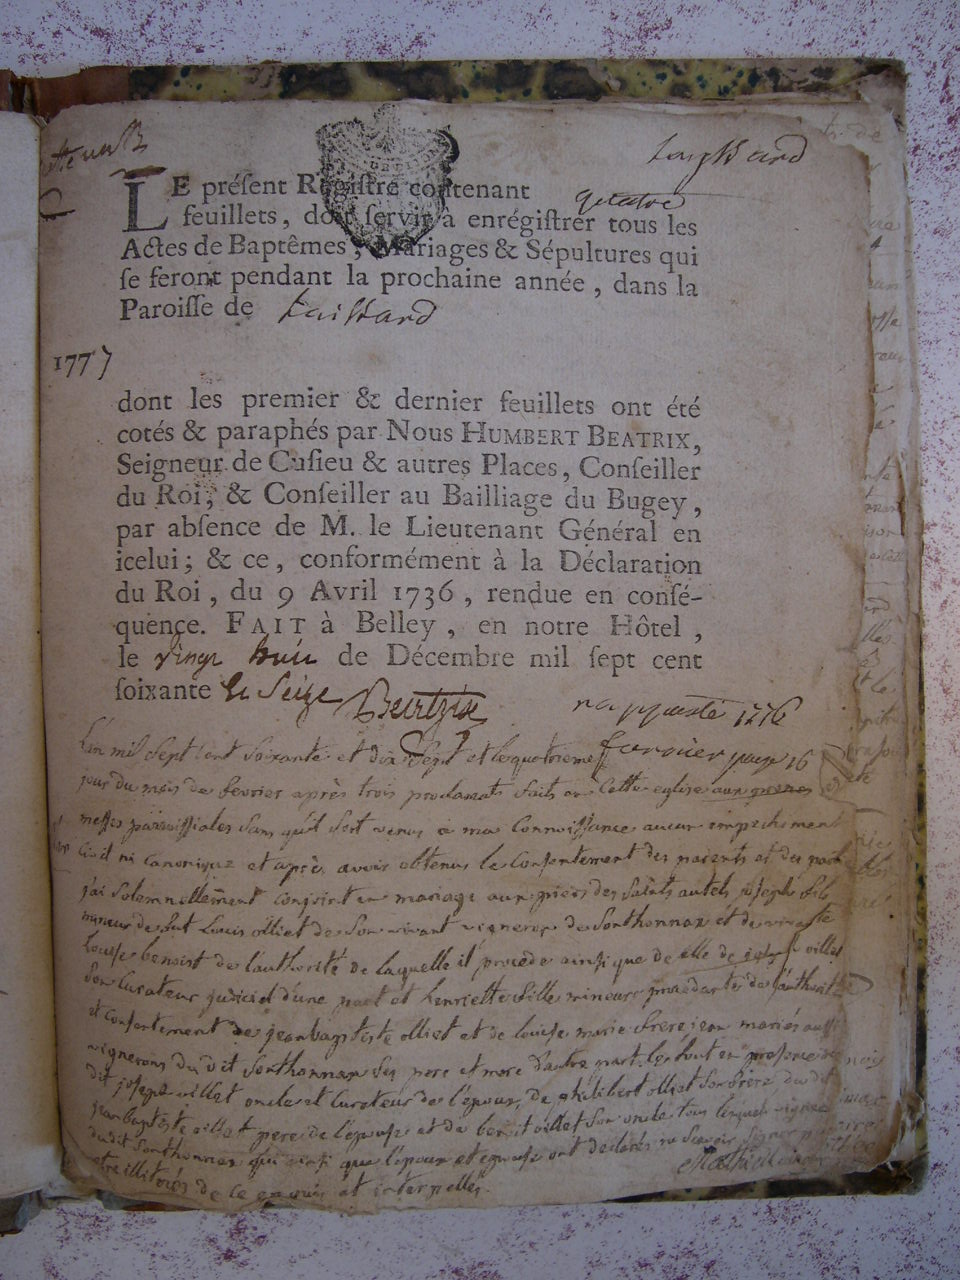 LE préſent Regiſtre contenant quatre
feuillets, doit ſervir à enrégiſtrer tous les
Actes de Baptêmes, Mariages & Sépultures qui
ſe feront pendant la prochaine année, dans la
Paroiſſe de
1777
dont les premier & dernier feuillets ont été
cotés & paraphés par Nous HUMBERT BEATRIX,
Seigneur de Cuſieu & autres Places, Conſeiller
du Roi, & Conſeiller au Bailliage du Bugey,
par abſence de M. le Lieutenant Général en
icelui; & ce, conformément à la Déclaration
du Roi, du 9 Avril 1736, rendue en conſé-
quence. FAIT à Belley, en notre Hôtel,
le vingt huit de Décembre mil ſept cent
ſoixante & Seize
1776
L'an mil Sept Cent Soixante et dix Sept et le quatrieme
jour du mois de fevrier après trois proclamats faits en Cette eglise aux
messes paroissiales Sans qu'il Soit venus à ma Connoissance aucun empechement
Civil ni canonique et après avoir obtenus le Consentement des parents et des
j'ai Solemnellement conjoint en mariage aux pieds des Saints autels joseph fils
mineur de Louis olliet de Son vivant vigneron de Sonthonnax et de vivante
Louise benoist de l'authorité de laquelle il procede ainsi que de
Son Curateur judiciel d'une part et henriette fille mineure procedante de l'authorité
et Consentement de jeanbaptiste olliet et de louise marie frerejean mariés
vignerons du dit Sonthonnax Ses pere et mere d'autre part. le tout en presence de
dit joseph oillet oncle et Curateur de l'epoux, de philibert olliet Son frere du dit
jeanbaptiste oillet pere de l'epouse et de benoit oillet Son oncle tous
du dit Sonthonnax qui ainsi que l'epoux et epouse ont declarés ne Scavoir signer
de ce enquis et interpellés